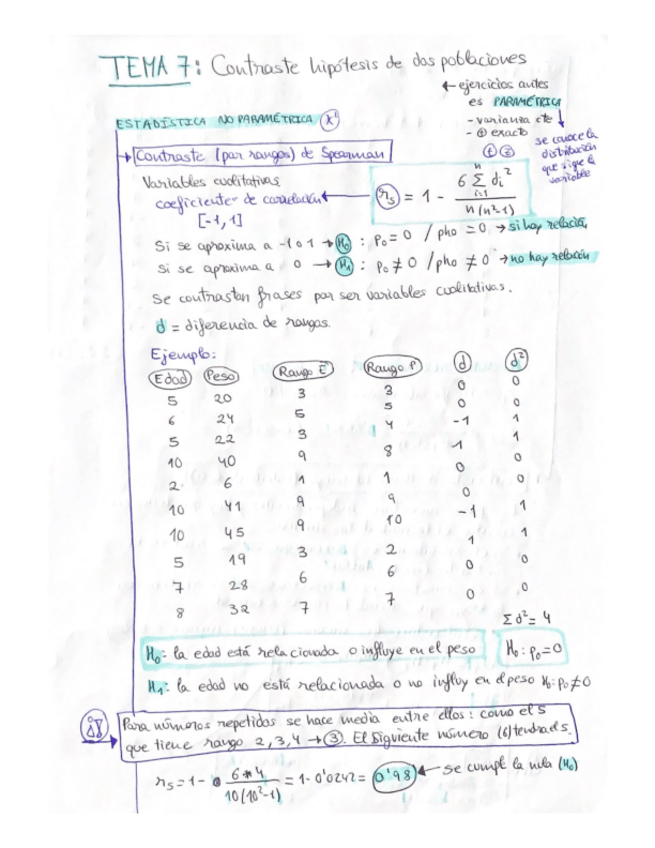 TEMA 7: Contraste hipótesis de dos poblaciones
← ejercicios antes
es PARAMÉTRICA
- varianza cte
- ⊕ exacto
(t) (z)
se conoce la
distribución
que sigue la
variable
ESTADÍSTICA NO PARAMÉTRICA
Contraste (por rangos) de Spearman
Variables cualitativas
coeficiente de correlación ← rs = 1 - 6 Σ di² / n(n²-1)
[-1, 1]
Si se aproxima a -1 o 1 → H₀ : p₀ = 0 / pho = 0 → si hay relación
Si se aproxima a 0 → H₁ : p₀ ≠ 0 / pho ≠ 0 → no hay relación
Se contrastan frases por ser variables cualitativas.
d = diferencia de rangos.
Ejemplo:
Edad Peso Rango E Rango P d d²
5 20 3 3 0 0
6 24 5 5 0 0
5 22 3 4 -1 1
10 40 9 8 1 1
2 6 1 1 0 0
10 41 9 9 0 0
10 45 9 10 -1 1
5 19 3 2 1 1
7 28 6 6 0 0
8 32 7 7 0 0
Σd² = 4
H₀: la edad está relacionada o influye en el peso H₀: p₀=0
H₁: la edad no está relacionada o no influy en el peso H₀: p₀≠0
Para números repetidos se hace media entre ellos: como el 5
que tiene rango 2, 3, 4 → 3. El siguiente número (6) tendra el 5.
rs = 1 - 6*4 / 10(10²-1) = 1 - 0'0242 = 0'98 ← se cumple la nula (H₀)